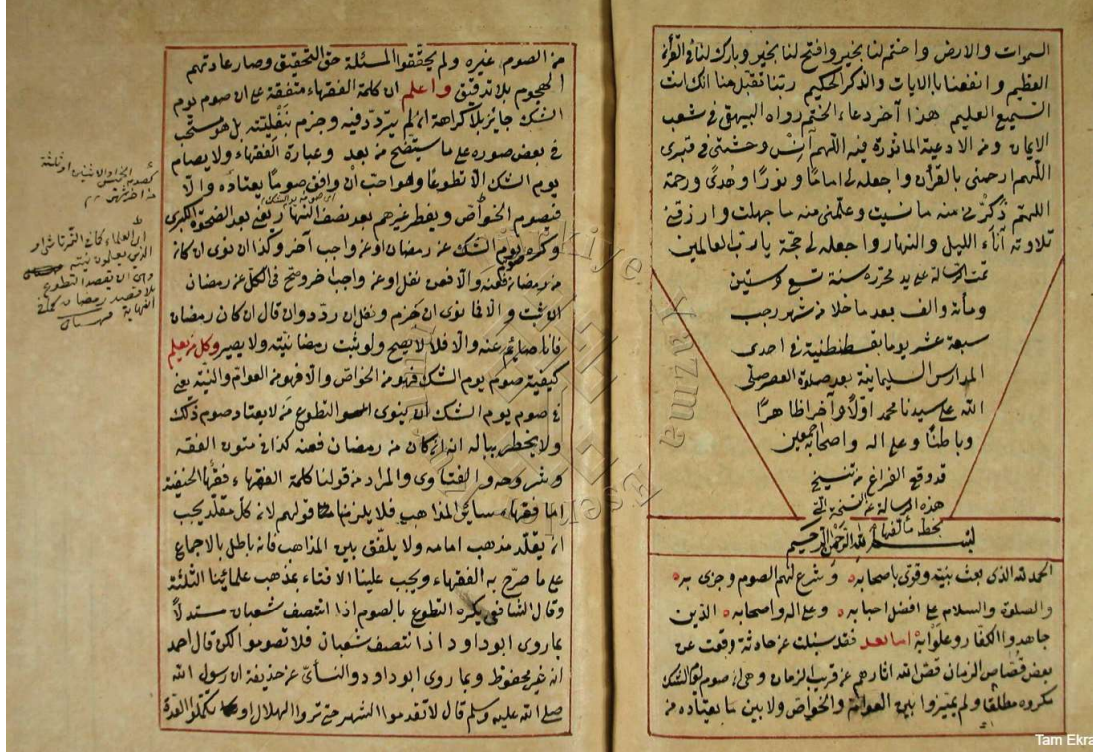 السموات والارض واختم لنا بخير وافتح لنا بخير وبارك لنا في القرآن
العظيم وانفعنا بالايات والذكر الحكيم ربنا تقبل منا انك انت
السميع العليم هذا آخر دعاء الختم رواه البيهقى في شعب
الايمان ومن الادعية الماثورة فيه اللهم آنس وحشتى في قبرى
اللهم ارحمنى بالقرأن واجعله لى اماما ونورًا وهُدىً ورحمة
اللهم ذكرنى منه ما نسيت وعلمنى منه ما جهلت وارزقنى
تلاوته آناء الليل والنهار واجعله لى حجة يا رب العالمين
تمت الرسالة على يد محرره سنة تسع وستين
ومأنة والف بعد ما خلا من شهر رجب
سبعة عشر يوما بقسطنطنية في احدى
المدارس السليمانية بعد صلوة العصر صلى
الله على سيدنا محمد اولًا وآخرًا ظاهرًا
وباطنًا وعلى اله واصحابه اجمعين
قد وقع الفراغ من تنسيخ
هذه الرسالة عن النسخة التى
بخط مألفها
بسم الله الرحمن الرحيم
الحمد لله الذى بعث بنيته وقوى باصحابه وشرع لهم الصوم وجزى به
والصلوة والسلام على افضل احبابه وعلى اله واصحابه الذين
جاهدوا الكفار وعلوا به اما بعد فقد سئلت عن حادثة وقعت عن
بعض قُصّاص الزمان قصّ الله اثارهم عن قريب الزمان وهى ان صوم يوم الشك
مكروه مطلقا ولم يميزوا بين العوام والخواص ولا بين ما يعتاده من
من الصوم غيره ولم يحققوا المسئلة حق التحقيق وصار عادتهم
الهجوم بلا تدقيق واعلم ان كلمة الفقهاء متفقة على ان صوم يوم
الشك جايز بلا كراهة ان لم يتردد فيه وجزم بنفليته بل هو مستحب
في بعض صوره على ما ستيضح من بعد وعبارة الفقهاء ولا يصام
يوم الشك الا تطوعًا وهو احب ان وافق صومًا يعتاده والّا
اى صومه يوم الشك
فيصوم الخواص ويفطر غيرهم بعد نصف النهار يعنى بعد الضحوة الكبرى
وكُره صوم يوم الشك عن رمضان او عن واجب آخر وكذا ان نوى ان كان
من رمضان فعنه والّا فعن نفل او عن واجب اخر وصح في الكل عن رمضان
ان ثبت والّا فما نوى ان جزم ونفل ان ردّد وان قال ان كان رمضان
فانا صايم عنه والّا فلا لا يصح ولو ثبت رمضانيته ولا يصير وكل من يعلم
كيفية صوم يوم الشك فهو من الخواص والا فهو من العوام والنية يعنى
في صوم يوم الشك ان ينوى التطوع من لا يعتاد صوم ذلك
ولا يخطر بباله انه ان كان من رمضان فعنه كذا في متون الفقه
وشروحه والفتاوى والمراد من قولنا كلمة الفقهاء فقهاء الحنيفة
اما فقهاء سائر المذاهب فلا يلزمنا قولهم لانه كل مقلد يجب
ان يقلد مذهب امامه ولا يلفق بين المذاهب فانه باطل بالاجماع
على ما صرح به الفقهاء ويجب علينا الافتاء بمذهب علمائنا الثلثة
وقال الشافعى يكره التطوع بالصوم اذا انتصف شعبان مستدلًا
بما روى ابو داود اذا انتصف شعبان فلا تصوموا لكن قال احمد
انه غير محفوظ وبما روى ابو داود والنسائى عن حذيفة ان رسول الله
صلى الله عليه وسلم قال لا تقدموا الشهر حتى تروا الهلال او تكملوا العدة
كصوم الخميس والاثنين او ثلثة
من اخر شهر
اى العلماء كافى التمرتاشى او
الذين يعلمون نيته
وهى ان يقصد التطوع
بلا قصد رمضان كما فى
النهاية قهستانى
Türkiye Yazma Eserler
Tam Ekra